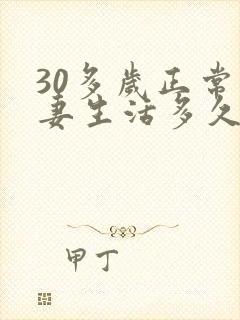 30多歲正常
妻生活多久
甲丁